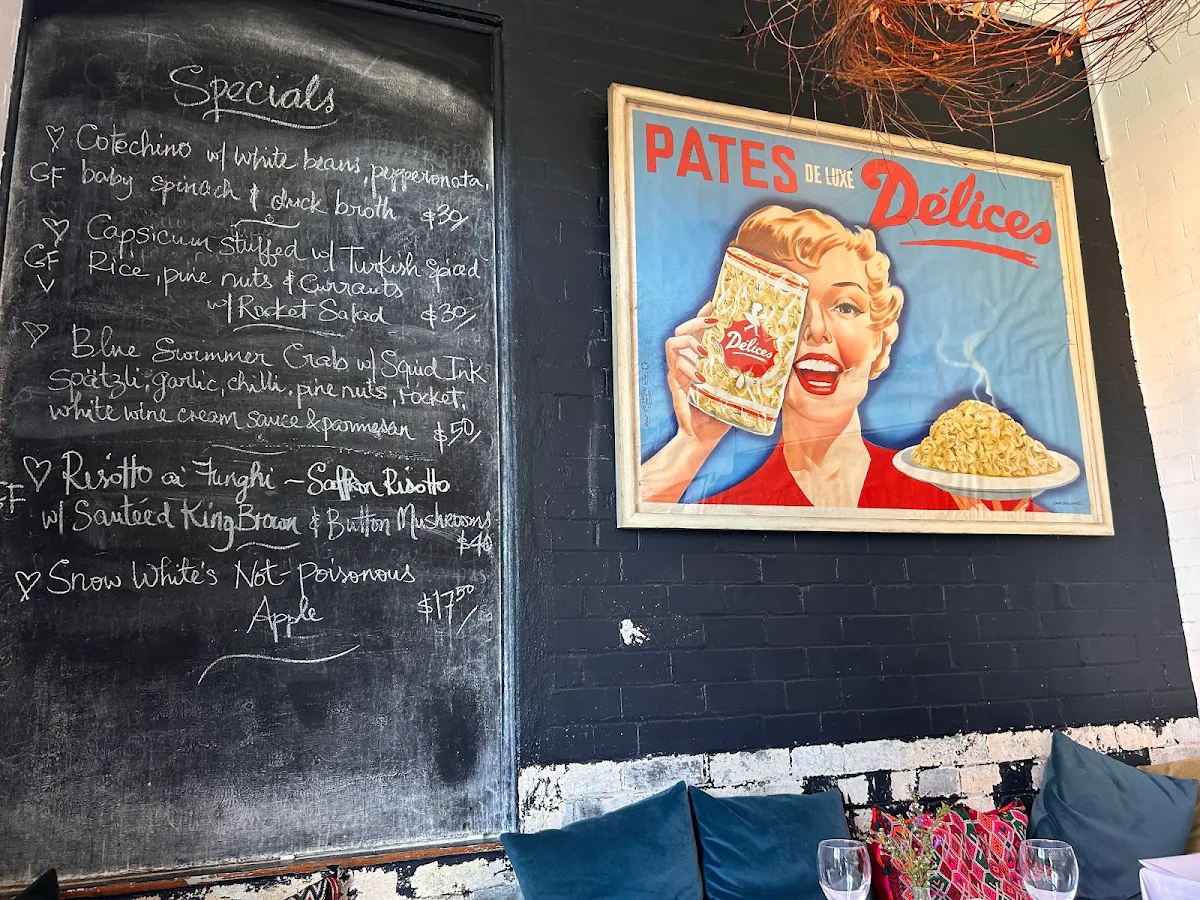 Specials
♡ Cotechino w/ white beans, pepperonata,
GF baby spinach & duck broth $30/
♡ Capsicum stuffed w/ Turkish Spiced
GF Rice, pine nuts & Currants
V w/ Rocket Salad $30/
♡ Blue Swimmer Crab w/ Squid Ink
Spätzli, garlic, chilli, pine nuts, rocket,
white wine cream sauce & parmesan $50/
♡ Risotto ai Funghi – Saffron Risotto
GF w/ Sauteéd King Brown & Button Mushrooms
$40
♡ Snow White's Not-Poisonous
Apple $17⁵⁰/
PATES DE LUXE Délices
Délices